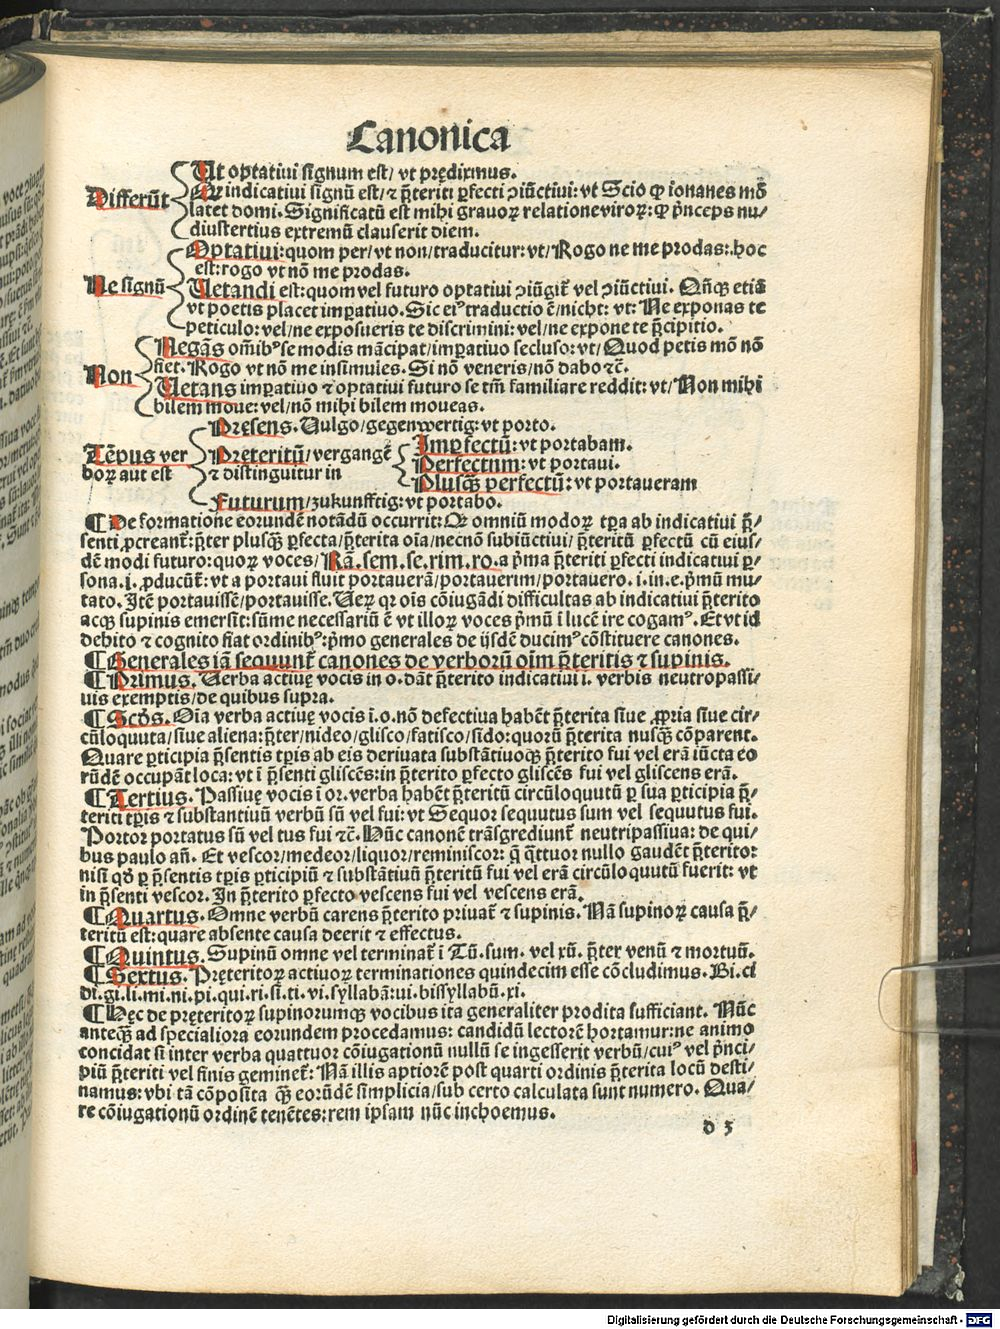 Canonica
Ut optatiui signum est/ vt prędiximus.
Differūt
Qꝛ indicatiui signū est/ ⁊ p̄teriti ꝑfecti ↄiūctiui: vt Scio ꝙ ionanes mō
latet domi. Significatū est mihi grauoꝝ relatione viroꝝ: ꝙ p̄nceps nu/
diustertius extremū clauserit diem.
Optatiui: quom per/ vt non/ traducitur: vt/ Rogo ne me prodas: hoc
est: rogo vt nō me prodas.
Ne signū
Uetandi est: quom vel futuro optatiui ↄiūgit᷑ vel ↄiūctiui. Qn̄qꝫ etiā
vt poetis placet imꝑatiuo. Sic eiꝰ traductio ē/ nicht: vt: Ne exponas te
periculo: vel/ ne exposueris te discrimini: vel/ ne expone te p̄cipitio.
Negās om̄ibꝰ se modis mācipat/ imꝑatiuo secluso: vt/ Quod petis mō nō
fiet. Rogo vt nō me insimules. Si nō veneris/ nō dabo ⁊c̄.
Non
Uetans imꝑatiuo ⁊ optatiui futuro se tm̄ familiare reddit: vt/ Non mihi
bilem moue: vel/ nō mihi bilem moueas.
Pręsens. Uulgo/ gegenwertig: vt porto.
Tēpus ver
boꝝ aut est
Pręteritū/ vergangē
⁊ distinguitur in
Imꝑfectū: vt portabam.
Perfectum: vt portaui.
Plusqꝫ̄ perfectū: vt portaueram
Futurum/ zukunfftig: vt portabo.
¶ De formatione eorundē notādū occurrit: Qꝛ omniū modoꝝ tꝑa ab indicatiui p̄/
senti ꝓcreant᷑: p̄ter plusqꝫ̄ perfecta/ p̄terita oīa/ necnō subiūctiui/ p̄teritū ꝑfectū cū eius/
dē modi futuro: quoꝝ voces/ Rā. sem. se. rim. ro. a p̄ma p̄teriti ꝑfecti indicatiui ꝑ/
sona. i. ꝓducūt᷑: vt a portaui fluit portauerā/ portauerim/ portauero. i. in. e. p̄mū mu/
tato. Itē portauissē/ portauisse. Ueꝝ qꝛ oīs cōiugādi difficultas ab indicatiui p̄terito
acqꝫ supinis emersit: sūme necessariū ē vt illoꝝ voces p̄mū ī lucē ire cogamꝰ. Et vt id
debito ⁊ cognito fiat ordinibꝰ: p̄mo generales de ijsdē ducimꝰ cōstituere canones.
¶ Generales iā sequunt᷑ canones de verborū oīm p̄teritis ⁊ supinis.
¶ Primus. Uerba actiuę vocis in o. dāt p̄terito indicatiui i. verbis neutropassi/
uis exemptis/ de quibus supra.
¶ Scd̄s. Oīa verba actiuę vocis ī. o. nō defectiua habēt p̄terita siue ꝓpria siue cir/
cūloquuta/ siue aliena: p̄ter/ nideo/ glisco/ fatisco/ sido: quorū p̄terita nusqꝫ̄ cōparent.
Quare ꝑticipia p̄sentis tꝑis ab eis deriuata substātiuoqꝫ p̄terito fui vel erā iūcta eo
rūdē occupāt loca: vt ī p̄senti gliscēs: in p̄terito ꝑfecto gliscēs fui vel gliscens erā.
¶ Tertius. Passiuę vocis ī or. verba habēt p̄teritū circūloquutū ꝑ sua ꝑticipia p̄/
teriti tꝑis ⁊ substantiuū verbū sū vel fui: vt Sequor sequutus sum vel sequutus fui.
Portor portatus sū vel tus fui ⁊c̄. Hūc canonē trāsgrediunt᷑ neutripassiua: de qui/
bus paulo añ. Et vescor/ medeor/ liquor/ reminiscor: q̄ q̄ttuor nullo gaudēt p̄terito:
nisi qd̄ ꝑ p̄sentis tꝑis ꝑticipiū ⁊ substātiuū p̄teritū fui vel erā circūloquutū fuerit: vt
in p̄senti vescor. In p̄terito ꝑfecto vescens fui vel vescens erā.
¶ Quartus. Omne verbū carens p̄terito priuat᷑ ⁊ supinis. Nā supinoꝝ causa p̄/
teritū est: quare absente causa deerit ⁊ effectus.
¶ Quintus. Supinū omne vel terminat᷑ ī Tū. sum. vel xū. p̄ter venū ⁊ mortuū.
¶ Sextus. Pręteritoꝝ actiuoꝝ terminationes quindecim esse cōcludimus. Bi. ci
di. gi. li. mi. ni. pi. qui. ri. si. ti. vi. syllabā: ui. bissyllabū. xi.
¶ Hęc de pręteritoꝝ supinorumqꝫ vocibus ita generaliter prodita sufficiant. Nūc
anteqꝫ̄ ad specialiora eorundem procedamus: candidū lectorē hortamur: ne animo
concidat si inter verba quattuor cōiugationū nullū se ingesserit verbū/ cuiꝰ vel p̄nci/
piū p̄teriti vel finis geminet᷑: Nā illis aptiorē post quarti ordinis p̄terita locū desti/
namus: vbi tā cōposita qꝫ̄ eorūdē simplicia/ sub certo calculata sunt numero. Qua/
re cōiugationū ordinē tenētes: rem ipsam nūc inchoemus.
d 3
Digitalisierung gefördert durch die Deutsche Forschungsgemeinschaft - DFG